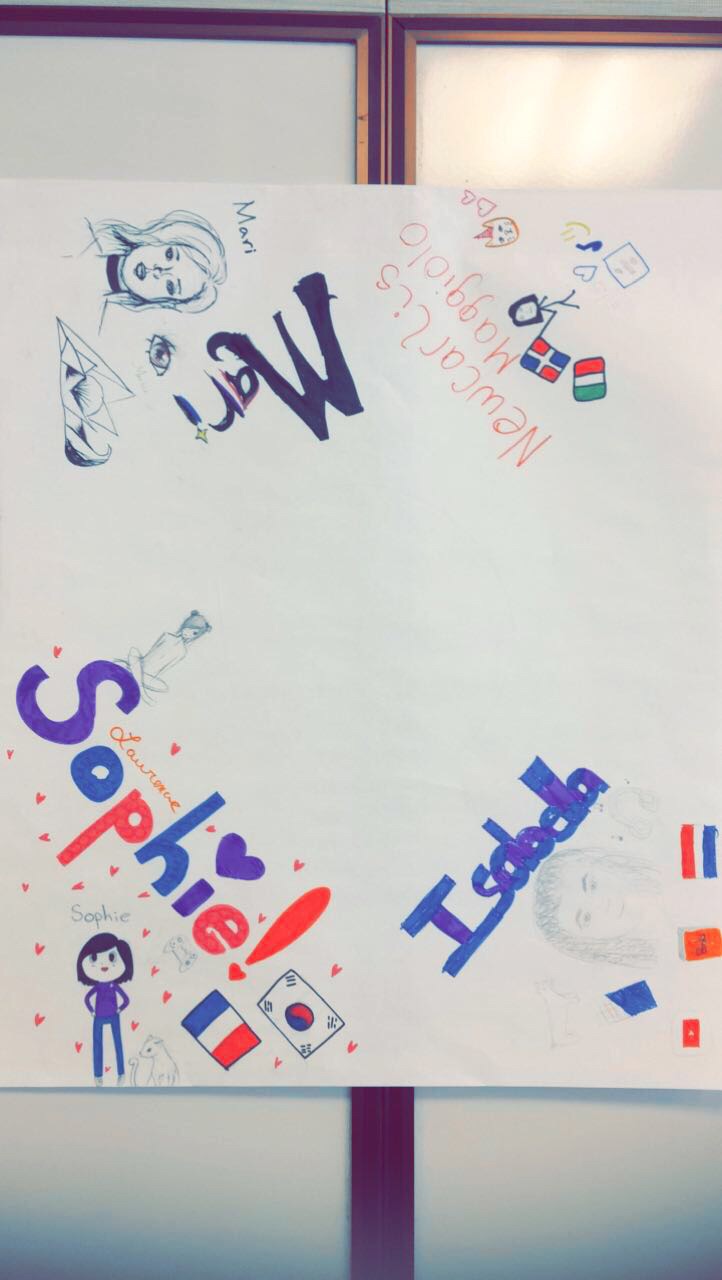 Mari
Mari
Newcarlis
Maggiolo
Sophie!
Laurence
Sophie
Isabella